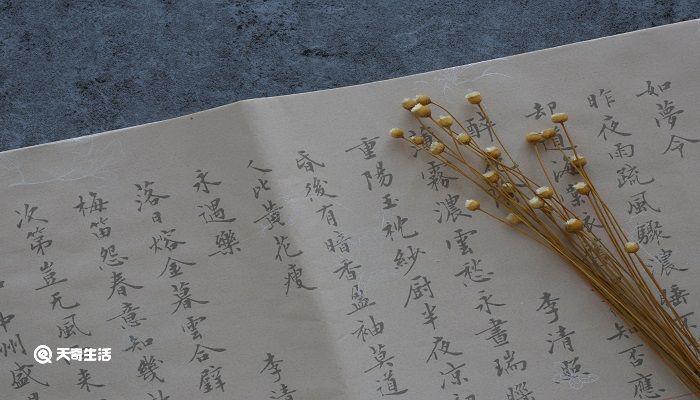 如夢令
昨夜雨疏風驟濃睡不
却道海棠依知否應
李清照
醉
薄霧濃雲愁永晝瑞腦
重陽玉枕紗厨半夜凉初
昏後有暗香盈袖莫道
人比黃花瘦
李清
永遇樂
落日熔金暮雲合璧
梅笛怨春意知幾
次第豈无風来
中州盛
天奇生活